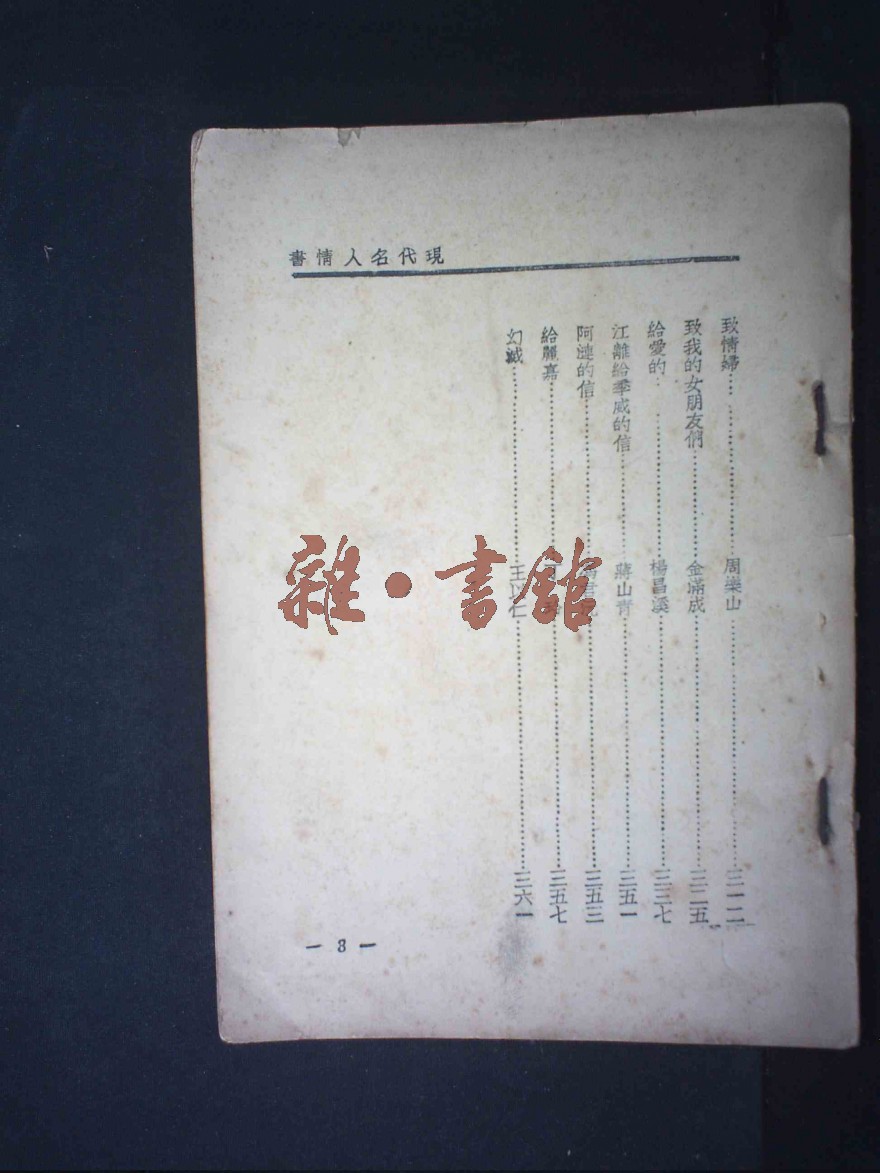 現代名人情書
致情婦……………………周樂山……………………三一二
致我的女朋友們……………………金滿成……………………三二五
給愛的……………………楊昌溪……………………三三七
江離給季威的信……………………蔣山青……………………三五一
阿漣的信……………………三五三
給麗嘉……………………三五七
幻滅……………………王以仁……………………三六一
— 3 —
雜·書館